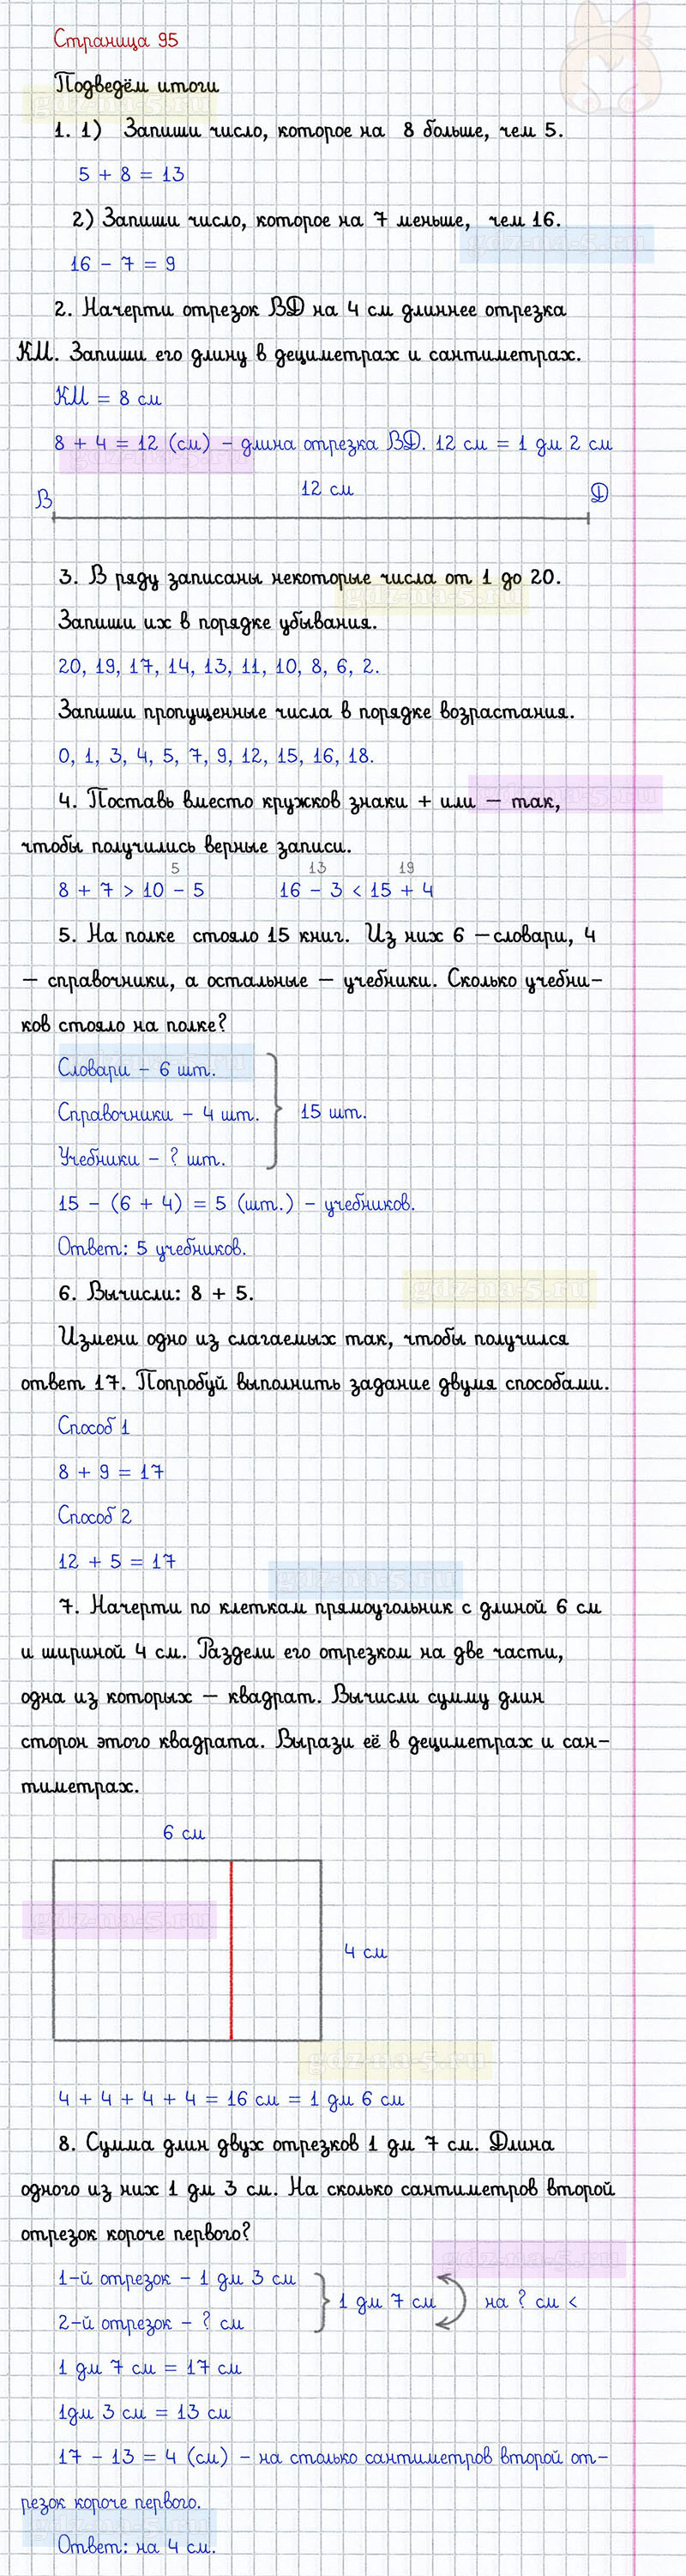 Страница 95
Подведём итоги
gdz-na-5.ru
1. 1) Запиши число, которое на 8 больше, чем 5.
5 + 8 = 13
2) Запиши число, которое на 7 меньше, чем 16.
gdz-na-5.ru
16 - 7 = 9
2. Начерти отрезок ВД на 4 см длиннее отрезка
КМ. Запиши его длину в дециметрах и сантиметрах.
КМ = 8 см
8 + 4 = 12 (см) - длина отрезка ВД. 12 см = 1 дм 2 см
gdz-na-5.ru
12 см
В Д
3. В ряду записаны некоторые числа от 1 до 20.
gdz-na-5.ru
Запиши их в порядке убывания.
20, 19, 17, 14, 13, 11, 10, 8, 6, 2.
Запиши пропущенные числа в порядке возрастания.
0, 1, 3, 4, 5, 7, 9, 12, 15, 16, 18.
4. Поставь вместо кружков знаки + или — так,
gdz-na-5.ru
чтобы получились верные записи.
5 13 19
8 + 7 > 10 - 5 16 - 3 < 15 + 4
5. На полке стояло 15 книг. Из них 6 — словари, 4
— справочники, а остальные — учебники. Сколько учебни-
ков стояло на полке?
gdz-na-5.ru
Словари - 6 шт.
Справочники - 4 шт. 15 шт.
Учебники - ? шт.
15 - (6 + 4) = 5 (шт.) - учебников.
Ответ: 5 учебников.
gdz-na-5.ru
6. Вычисли: 8 + 5.
Измени одно из слагаемых так, чтобы получился
ответ 17. Попробуй выполнить задание двумя способами.
Способ 1
8 + 9 = 17
Способ 2
12 + 5 = 17
gdz-na-5.ru
7. Начерти по клеткам прямоугольник с длиной 6 см
и шириной 4 см. Раздели его отрезком на две части,
одна из которых — квадрат. Вычисли сумму длин
сторон этого квадрата. Вырази её в дециметрах и сан-
тиметрах.
6 см
gdz-na-5.ru
4 см
gdz-na-5.ru
4 + 4 + 4 + 4 = 16 см = 1 дм 6 см
8. Сумма длин двух отрезков 1 дм 7 см. Длина
одного из них 1 дм 3 см. На сколько сантиметров второй
отрезок короче первого?
gdz-na-5.ru
1-й отрезок - 1 дм 3 см
1 дм 7 см на ? см <
2-й отрезок - ? см
1 дм 7 см = 17 см
1дм 3 см = 13 см
17 - 13 = 4 (см) - на столько сантиметров второй от-
резок короче первого.
gdz-na-5.ru
Ответ: на 4 см.